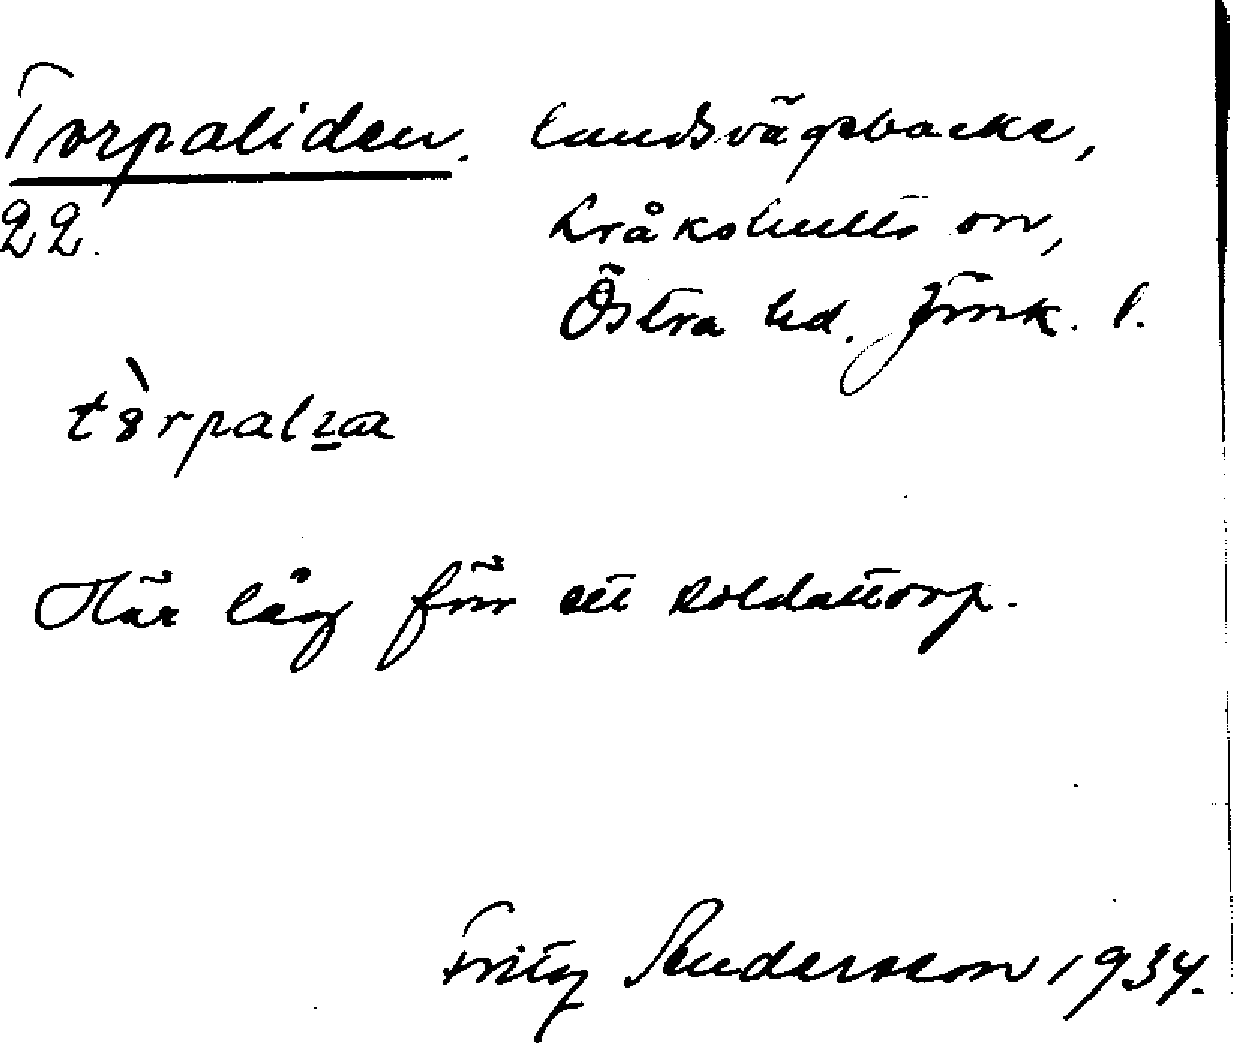 Torpaliden. landsvägsbacke,
22. Kråkshults sn,
Östra hd. Jönk. l.
Här låg förr ett soldattorp.
Fritz Andersson 1934.